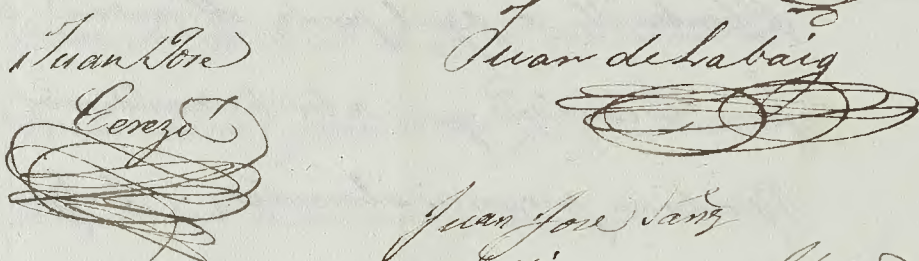 Juan Jose
Cerezo
Juan de Labaig
Juan Jose Sanz